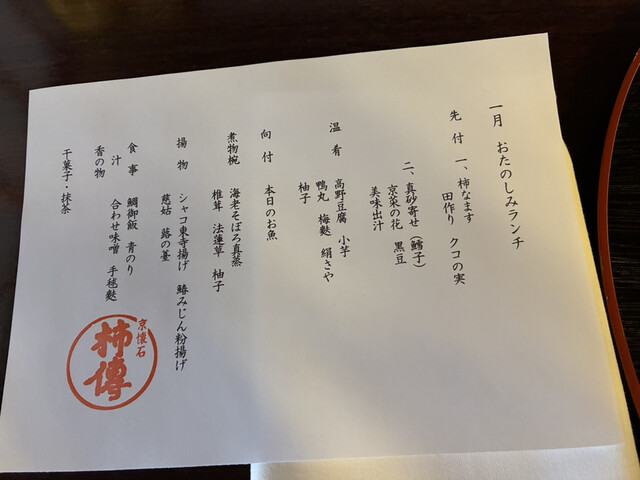 一月　おたのしみランチ
先付　一、柿なます
田作り　クコの実
二、真砂寄せ（鱈子）
京菜の花　黒豆
美味出汁
温肴　高野豆腐　小芋
鴨丸　梅麩　絹さや
柚子
向付　本日のお魚
煮物椀　海老そぼろ真蒸
椎茸　法蓮草　柚子
揚物　シャコ東寺揚げ　鰆みじん粉揚げ
慈姑　蕗の薹
食事　鯛御飯　青のり
汁　合わせ味噌　手毬麩
香の物
干菓子・抹茶
京懐石
柿傳